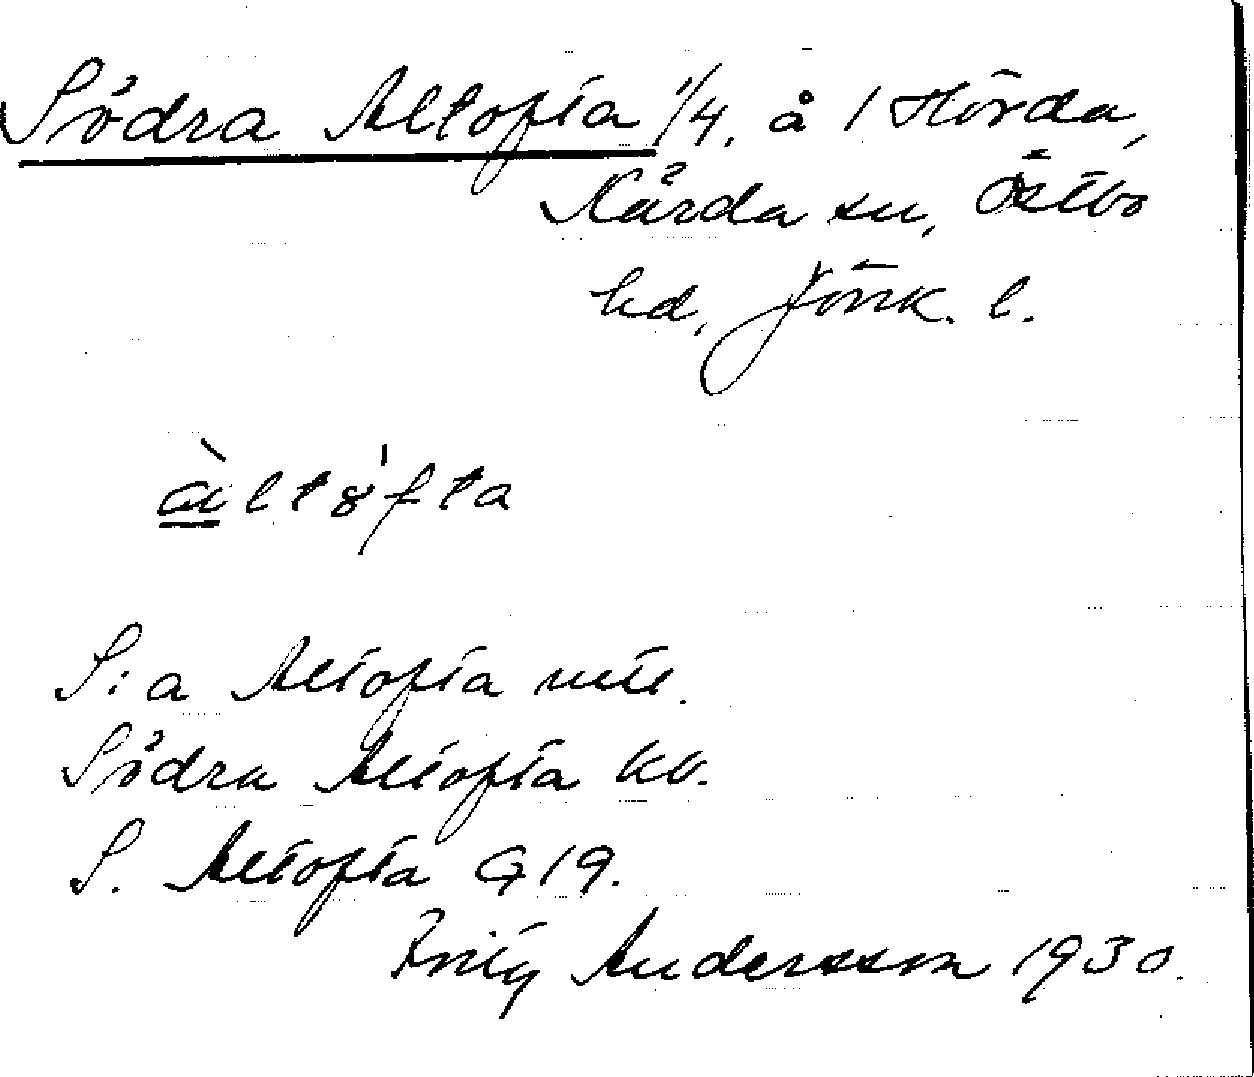 Södra Altofta 1/4, å 1 Hörda,
Kärda sn, Östbo
hd, Jönk. l.
àltøfta
S:a Altofta mtl.
Södra Altofta kv.
S. Altofta G19.
Andersson 1930.